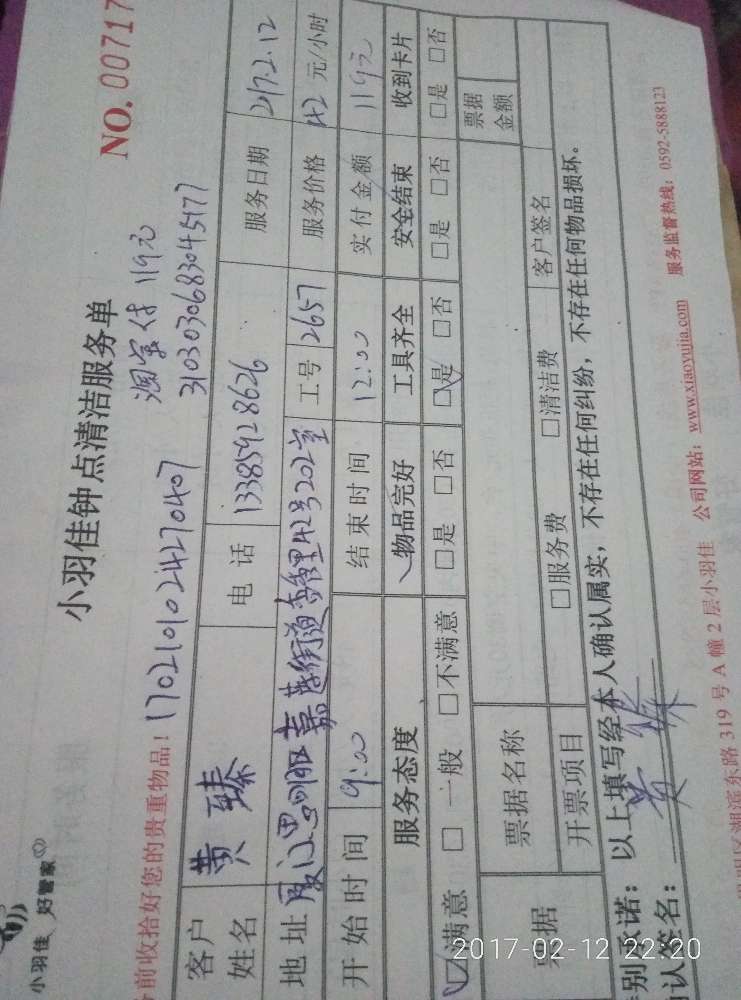 小羽佳 好管家
小羽佳钟点清洁服务单
NO. 00717
淘宝付 119元
前收拾好您的贵重物品！1702101024270407
3103030683045177
客户姓名 黄臻 电话 13385928626 服务日期 2017.2.12
地址 厦门思明区嘉莲街道 42号202室 工号 2657 服务价格 42 元/小时
开始时间 9:00 结束时间 12:00 实付金额 119元
服务态度 物品完好 工具齐全 安全结束 收到卡片
☑满意 □一般 □不满意 □是 □否 ☑是 □否 □是 □否 □是 □否
票据 票据名称 票据金额
开票项目 □服务费 □清洁费 客户签名
别承诺：以上填写经本人确认属实，不存在任何纠纷，不存在任何物品损坏。
认签名：黄臻
湖滨东路 319 号 A 幢 2 层小羽佳 公司网站：www.xiaoyujia.com 服务监督热线：0592-5888123
2017-02-12 22:20